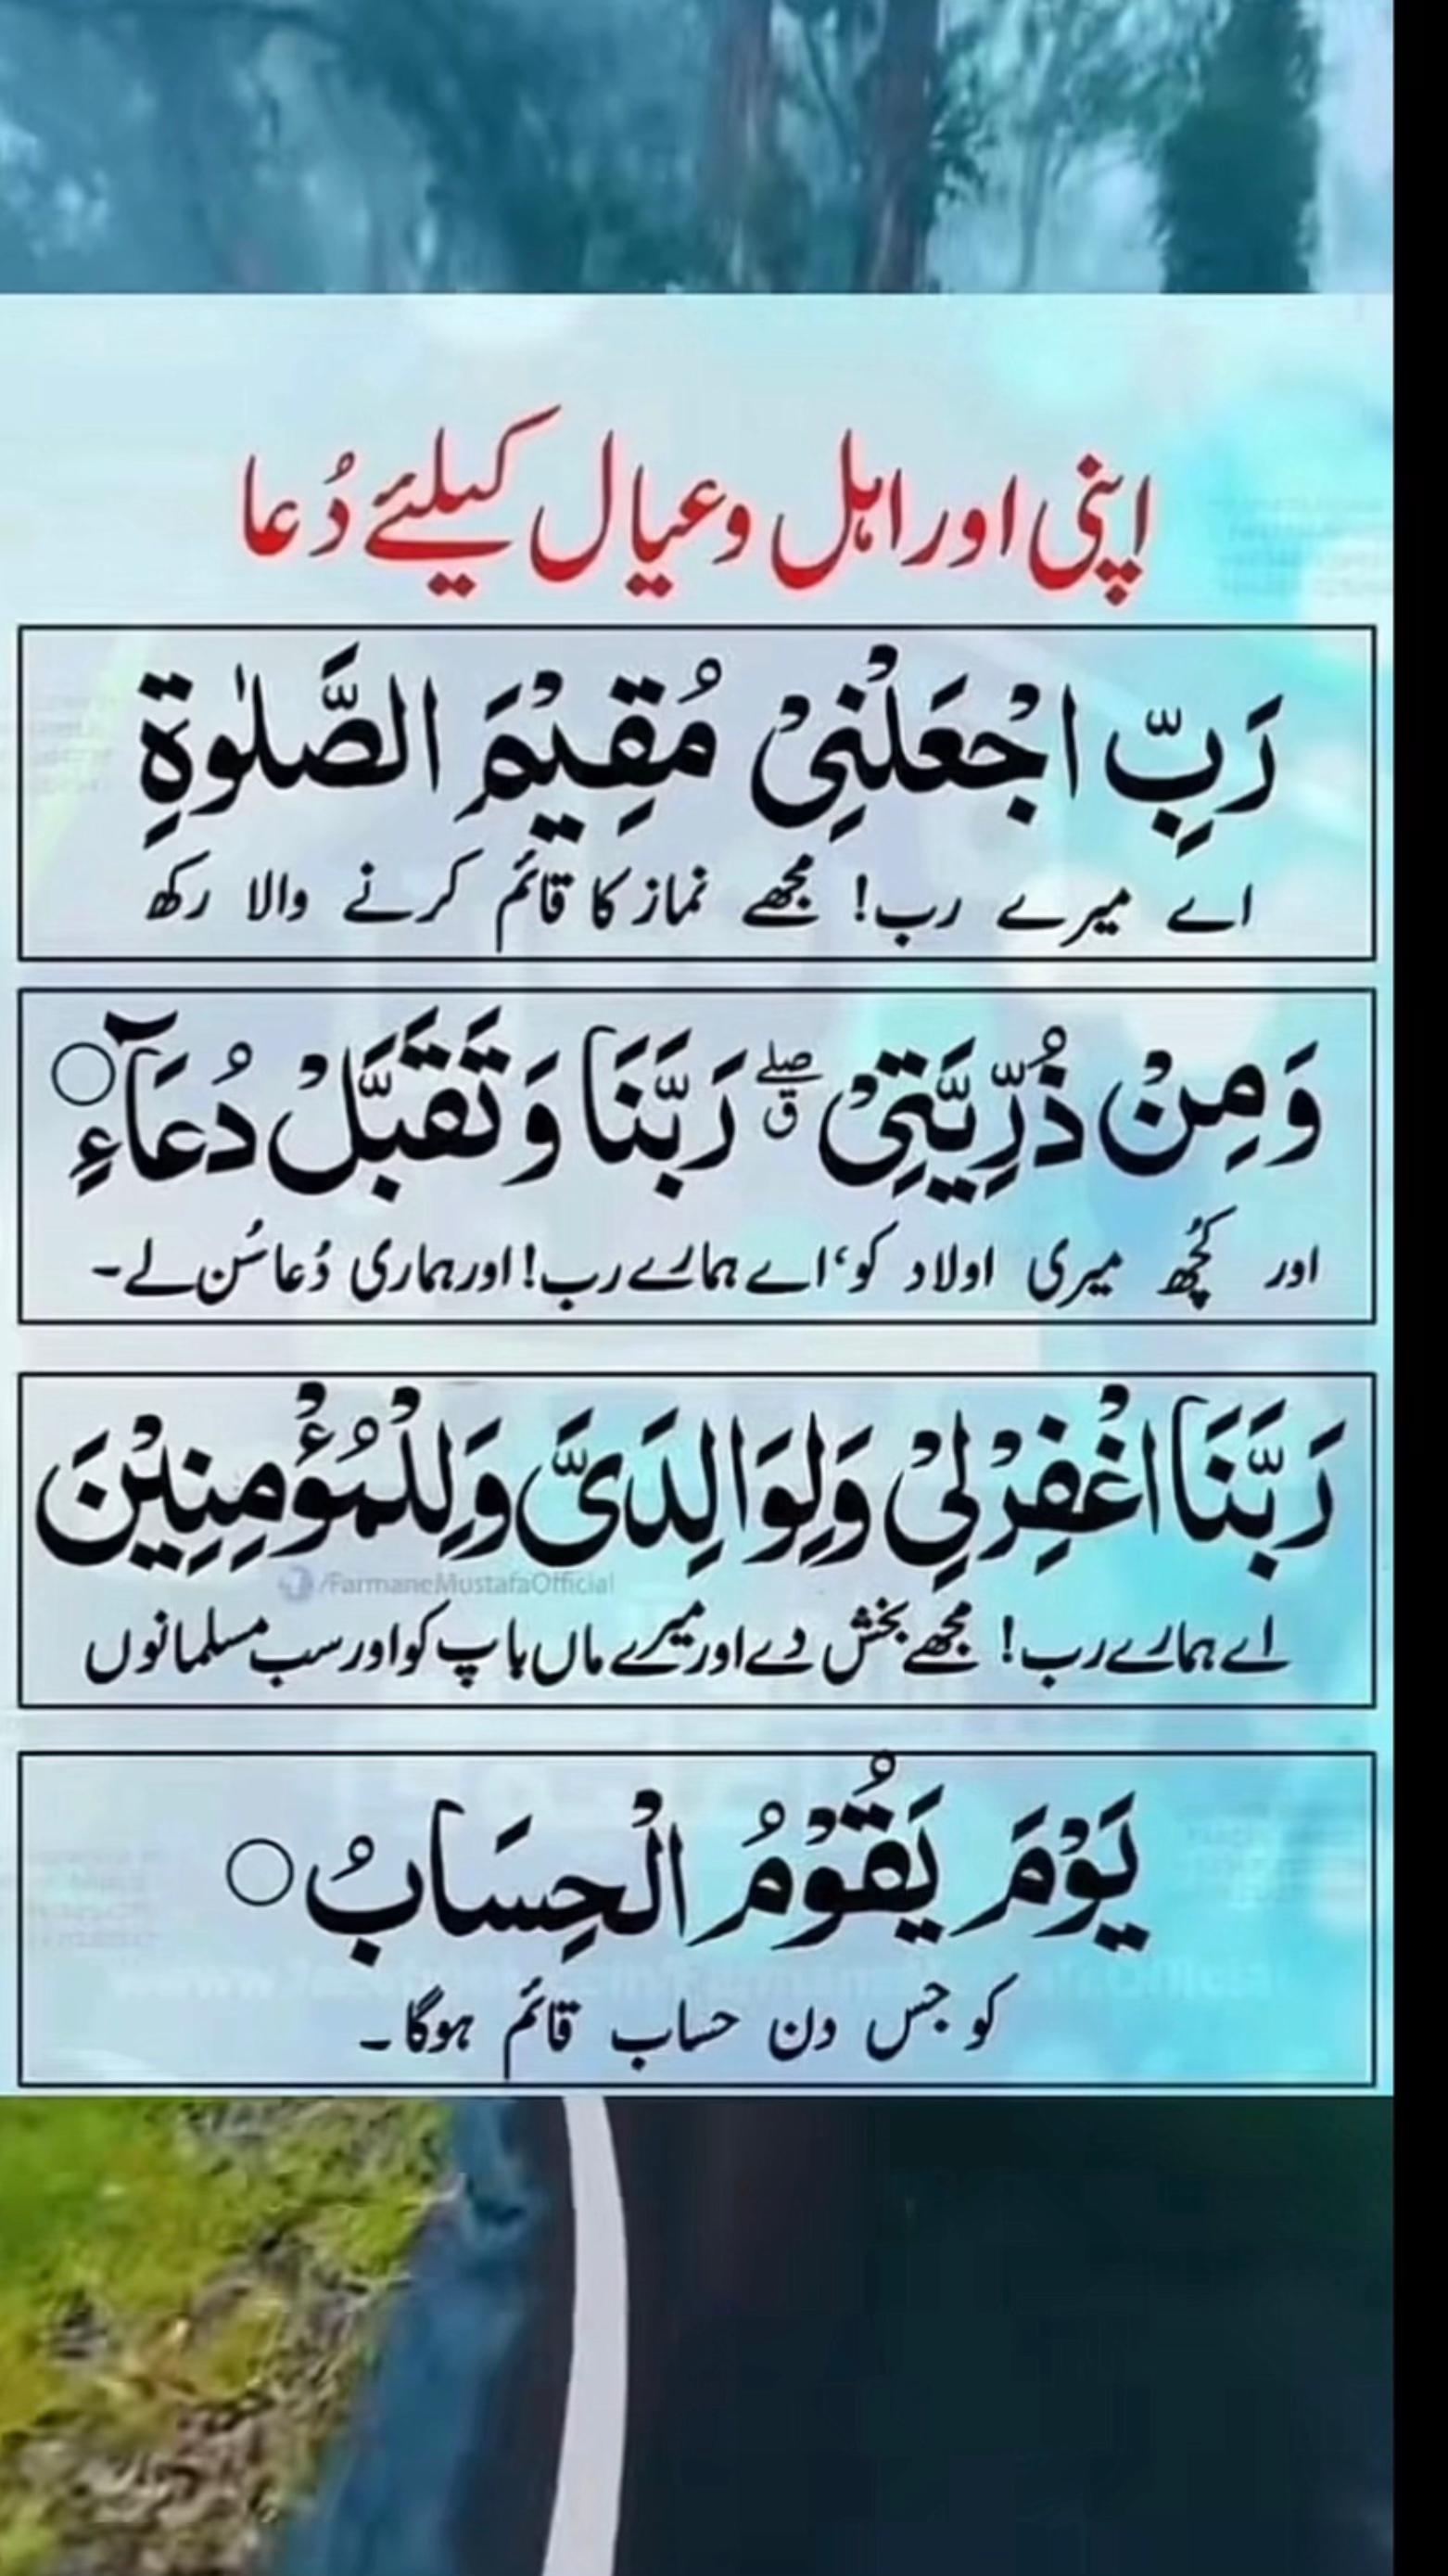 اپنی اور اہل و عیال کیلئے دُعا
رَبِّ اجْعَلْنِیْ مُقِیْمَ الصَّلٰوةِ
اے میرے رب! مجھے نماز کا قائم کرنے والا رکھ
وَمِنْ ذُرِّیَّتِیْ ۖق رَبَّنَا وَتَقَبَّلْ دُعَآءِ○
اور کُچھ میری اولاد کو، اے ہمارے رب! اور ہماری دُعا سُن لے۔
رَبَّنَا اغْفِرْ لِیْ وَلِوَالِدَیَّ وَلِلْمُؤْمِنِیْنَ
/FarmaneMustafaOfficial
اے ہمارے رب! مجھے بخش دے اور میرے ماں باپ کو اور سب مسلمانوں
یَوْمَ یَقُوْمُ الْحِسَابُ○
کو جس دن حساب قائم ہوگا۔